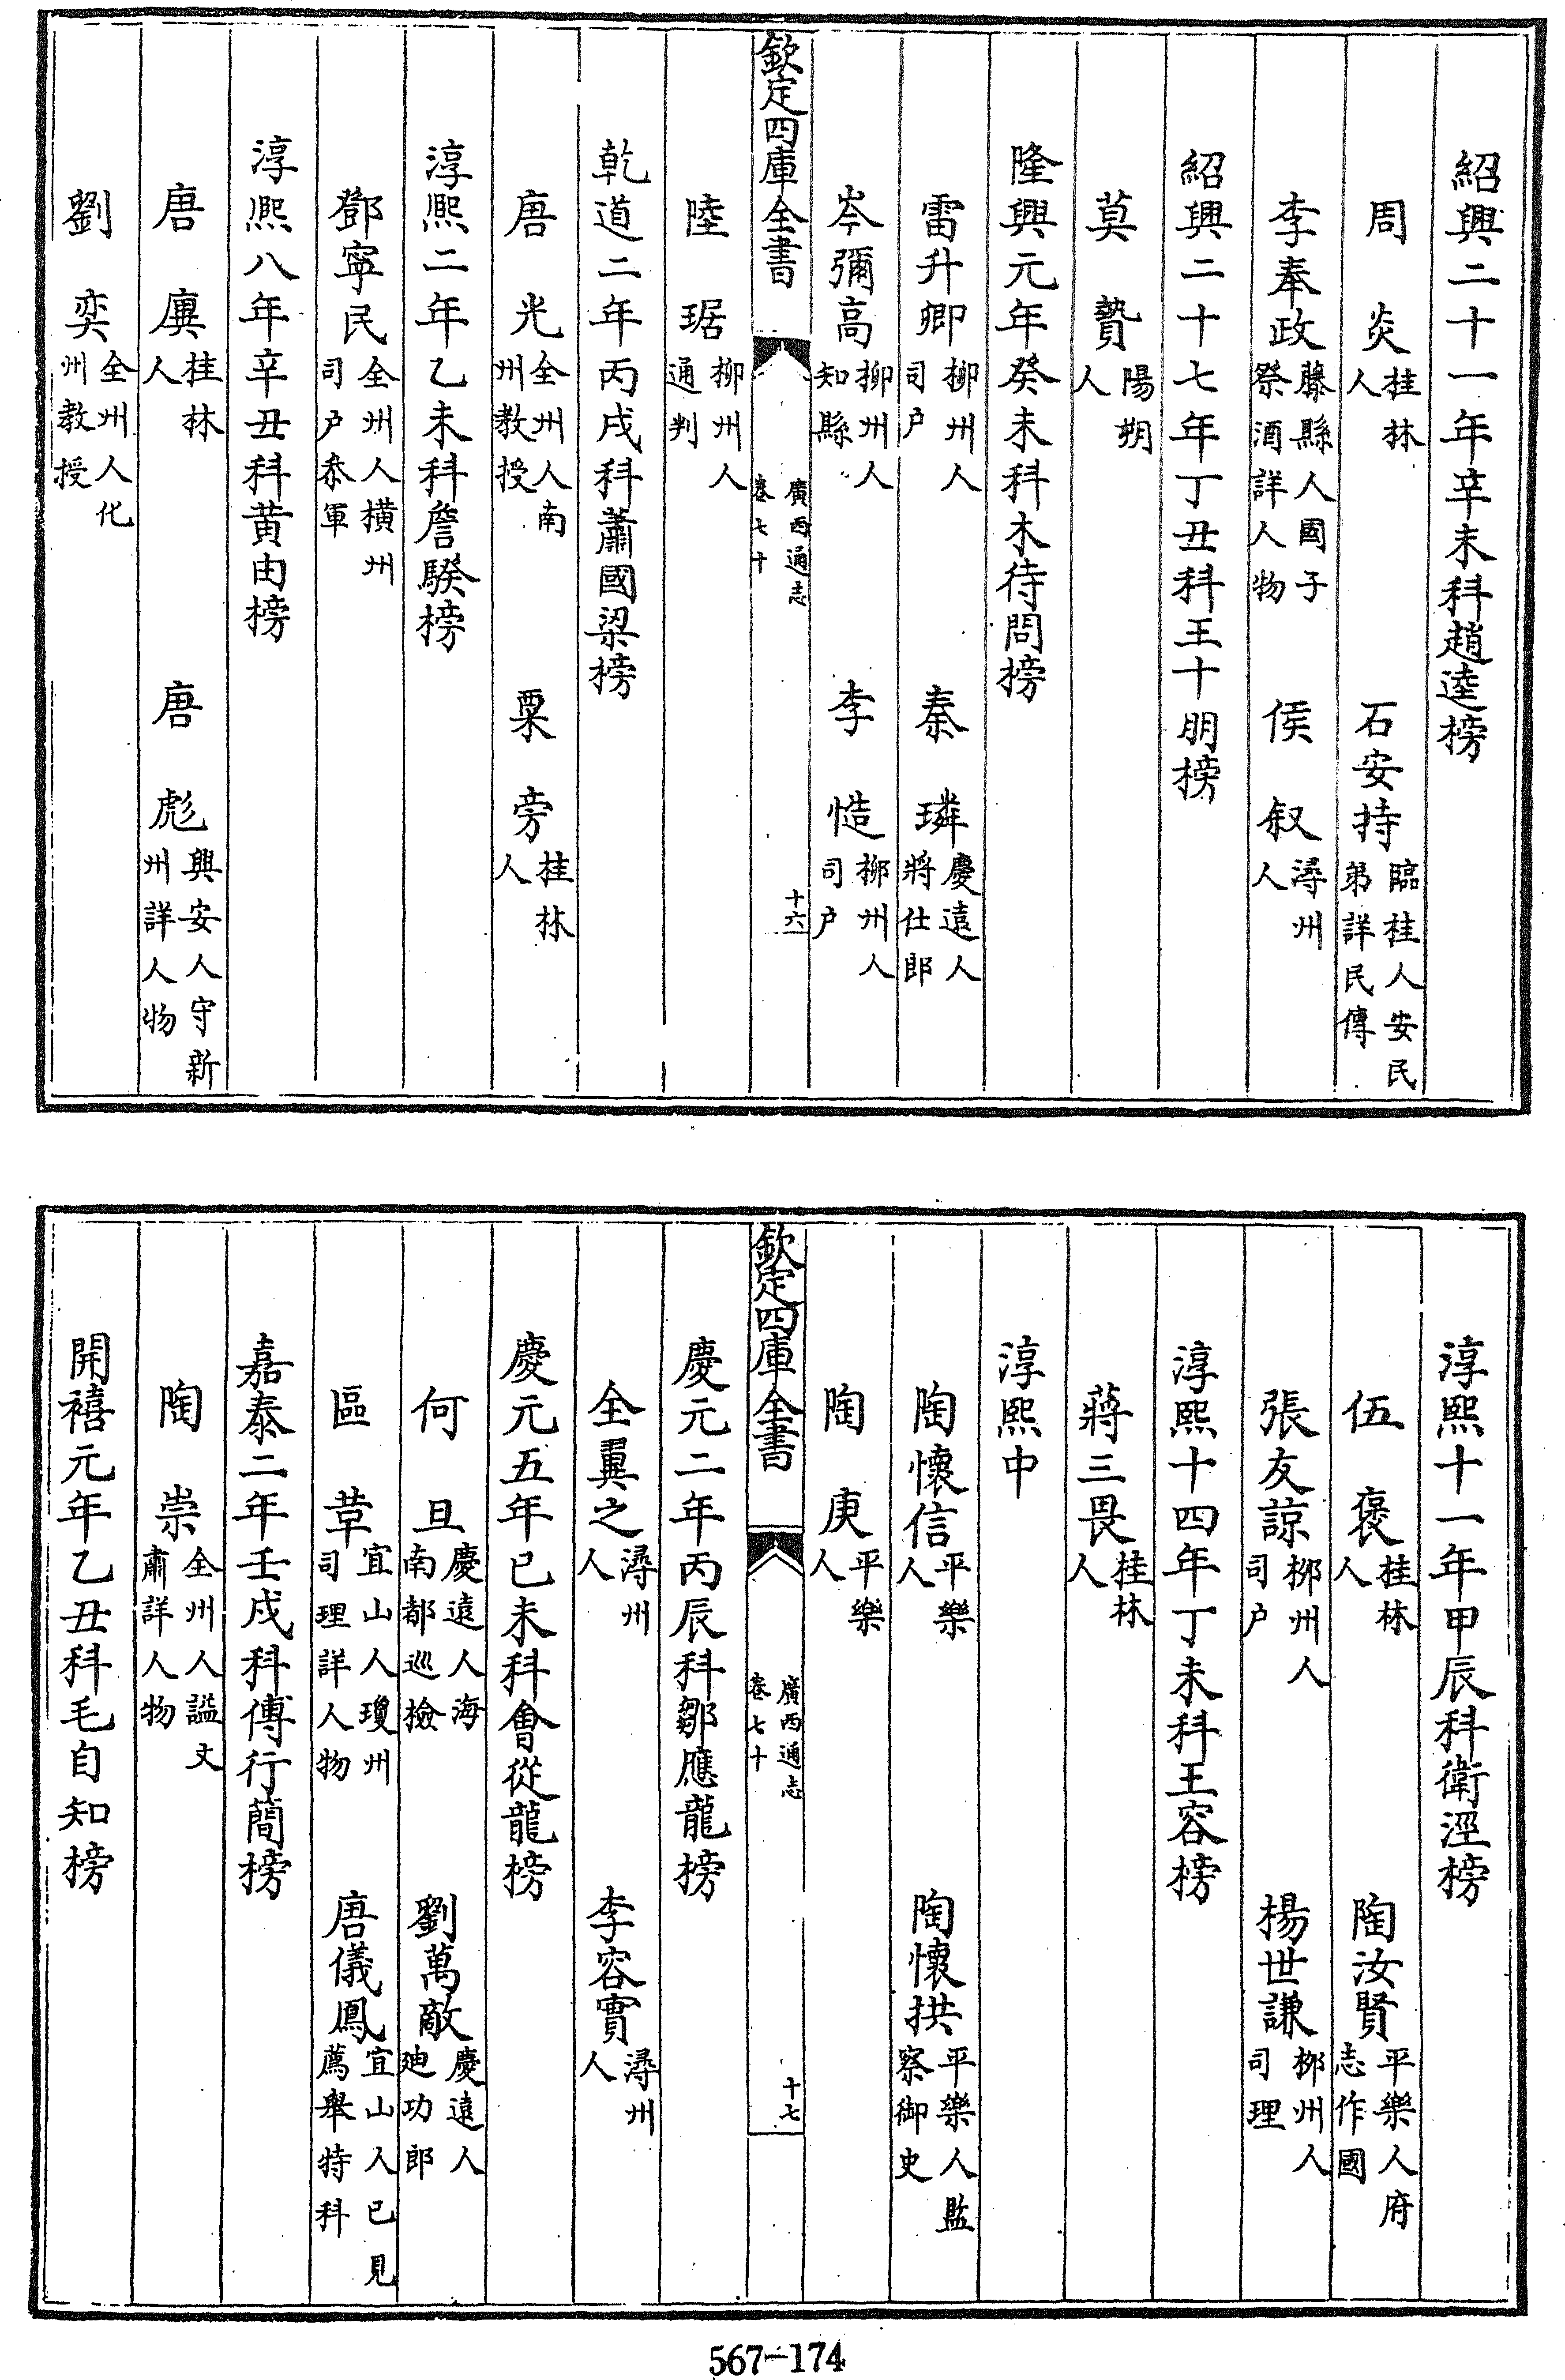 紹興二十一年辛未科趙逵榜
周炎桂林人 石安持臨桂人安民弟詳民傳
李奉政藤縣人國子祭酒詳人物 侯叙潯州人
紹興二十七年丁丑科王十朋榜
莫贄陽朔人
隆興元年癸未科木待問榜
雷升卿柳州人司户 秦璘慶遠人將仕郎
岑彌高柳州人知縣 李慥柳州人司户
欽定四庫全書 廣西通志卷七十 十六
陸琚柳州人通判
乾道二年丙戌科蕭國梁榜
唐光全州人南州教授 粟旁桂林人
淳熙二年乙未科詹騤榜
鄧寧民全州人橫州司户叅軍
淳熙八年辛丑科黄由榜
唐廙桂林人 唐彪興安人守新州詳人物
劉奕全州人化州教授
淳熙十一年甲辰科衛涇榜
伍褒桂林人 陶汝賢平樂人府志作國
張友諒柳州人司户 楊世謙柳州人司理
淳熙十四年丁未科王容榜
蔣三畏桂林人
淳熙中
陶懷信平樂人 陶懷拱平樂人監察御史
陶庚平樂人
欽定四庫全書 廣西通志卷七十 十七
慶元二年丙辰科鄒應龍榜
全翼之潯州人 李容實潯州人
慶元五年己未科曾從龍榜
何旦慶遠人海南都巡檢 劉萬敵慶遠人廸功郎
區草宜山人瓊州司理詳人物 唐儀鳳宜山人已見薦舉特科
嘉泰二年壬戌科傅行簡榜
陶崇全州人謚文肅詳人物
開禧元年乙丑科毛自知榜
567-174